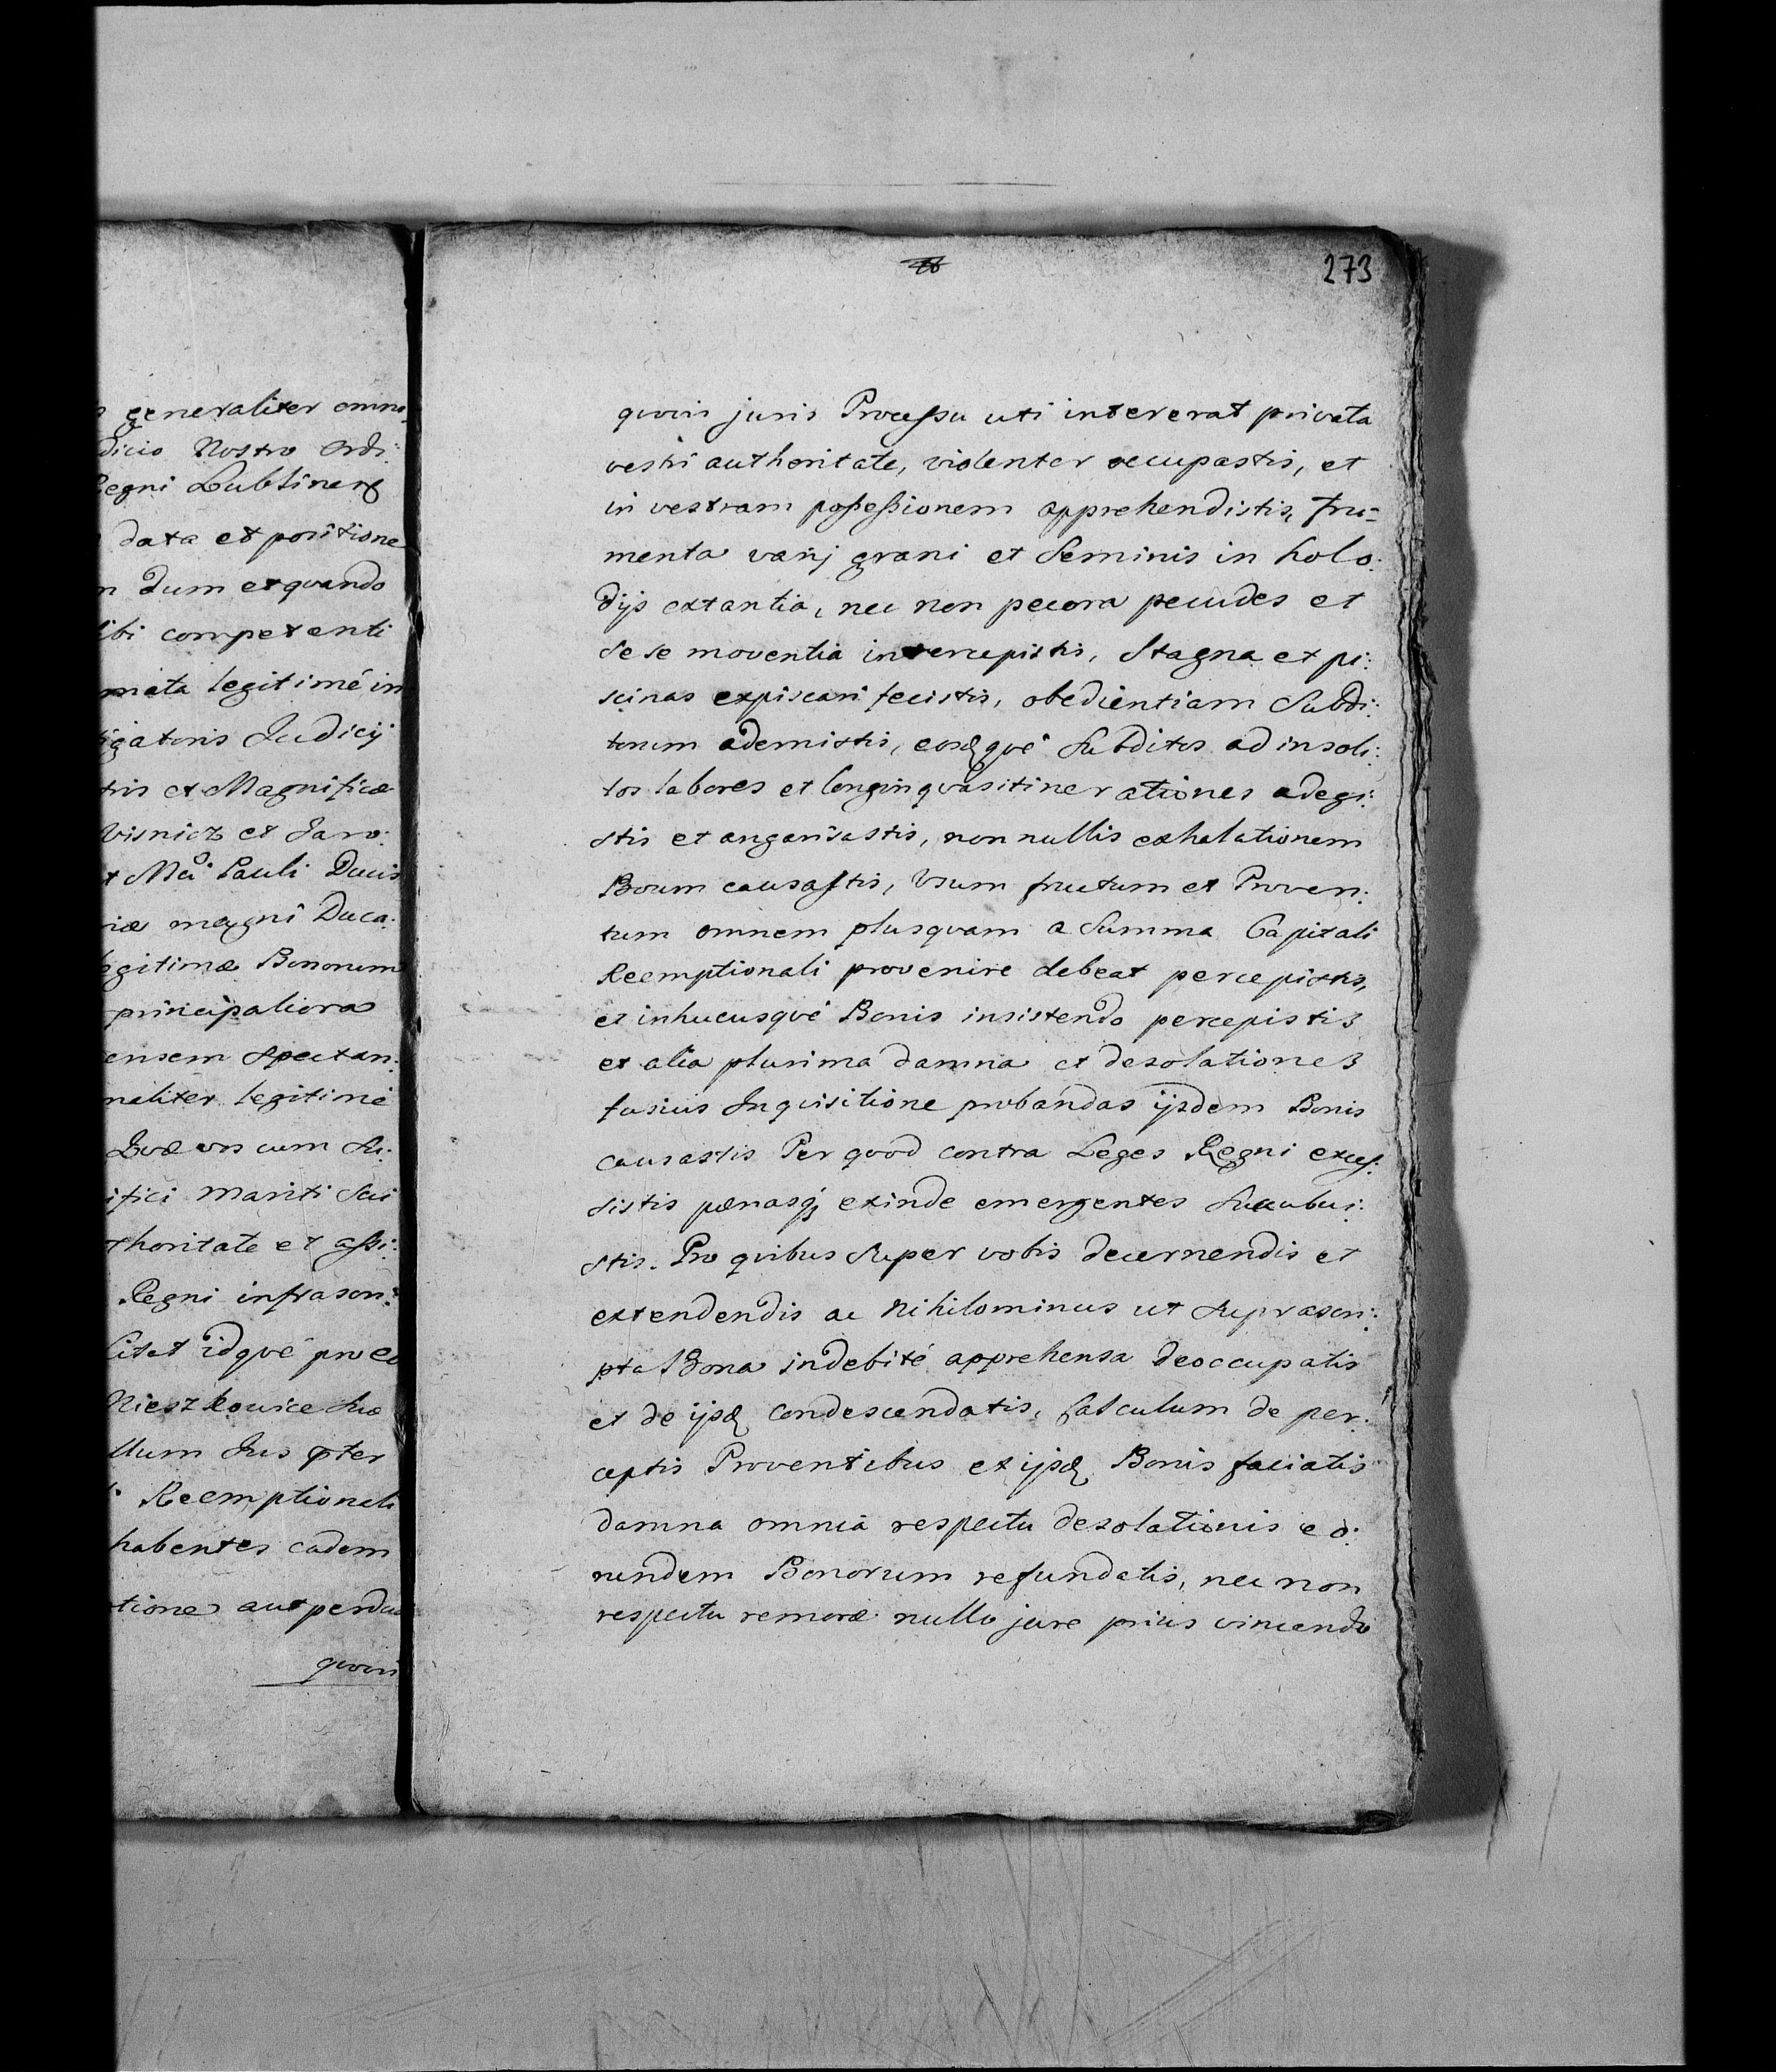 273
generaliter omni
dicio Nostro Ordi:
Regni Lublinens
data et positione
dum et quando
ibi competenti
mata legitimé in
igatoris Judicij
tris et Magnificæ
Visnicz et Jaro:
Pauli Ducis
riæ magni Duca:
egitimæ Bonorum
principaliora
ensem spectan:
neliter legitimé
Quæ vos cum
ifici Mariti Sui
thoritate et assi:
Regni infrascri:
citat idqué pro eo
Nieszkowice
llum Jus
Reemptionali
habentes eadem
tione aut perduc
quovis
quovis juris Processu uti intererat privata
vestri authoritate, violenter occupastis, et
in vestram possessionem apprehendistis, fru=
menta varij grani et Seminis in holo:
dijs extantia, nec non pecora pecudes et
se se moventia intercepistis, Stagna et pi:
scinas expiscari fecistis, obedientiam Subdi:
torum ademistis, eosqué Subditos ad insoli:
tos labores et longinquas itinerationes adegi:
stis et angariastis, non nullis exhalationem
Boum causastis, Usum fructum et Proven:
tum omnem plusquam a Summa Capitali
Reemptionali provenire debeat percepistis,
et inhucusqué Bonis insistendo percepistis
et alia plurima damna et desolationes
fusius Inquisitione probandas ijsdem Bonis
causastis Per quod contra Leges Regni exces:
sistis pœnasq; exinde emergentes Succubui:
stis. Pro quibus Super vobis decernendis et
extendendis ac nihilominus ut Suprascri:
pta Bona indebité apprehensa deoccupatis
et de ijsd condescendatis, Calculum de per:
ceptis Proventibus ex ijsd Bonis faciatis
damna omnia respectu desolationis eo:
rundem Bonorum refundatis, nec non
respectu remoræ nullo jure prius vincendo